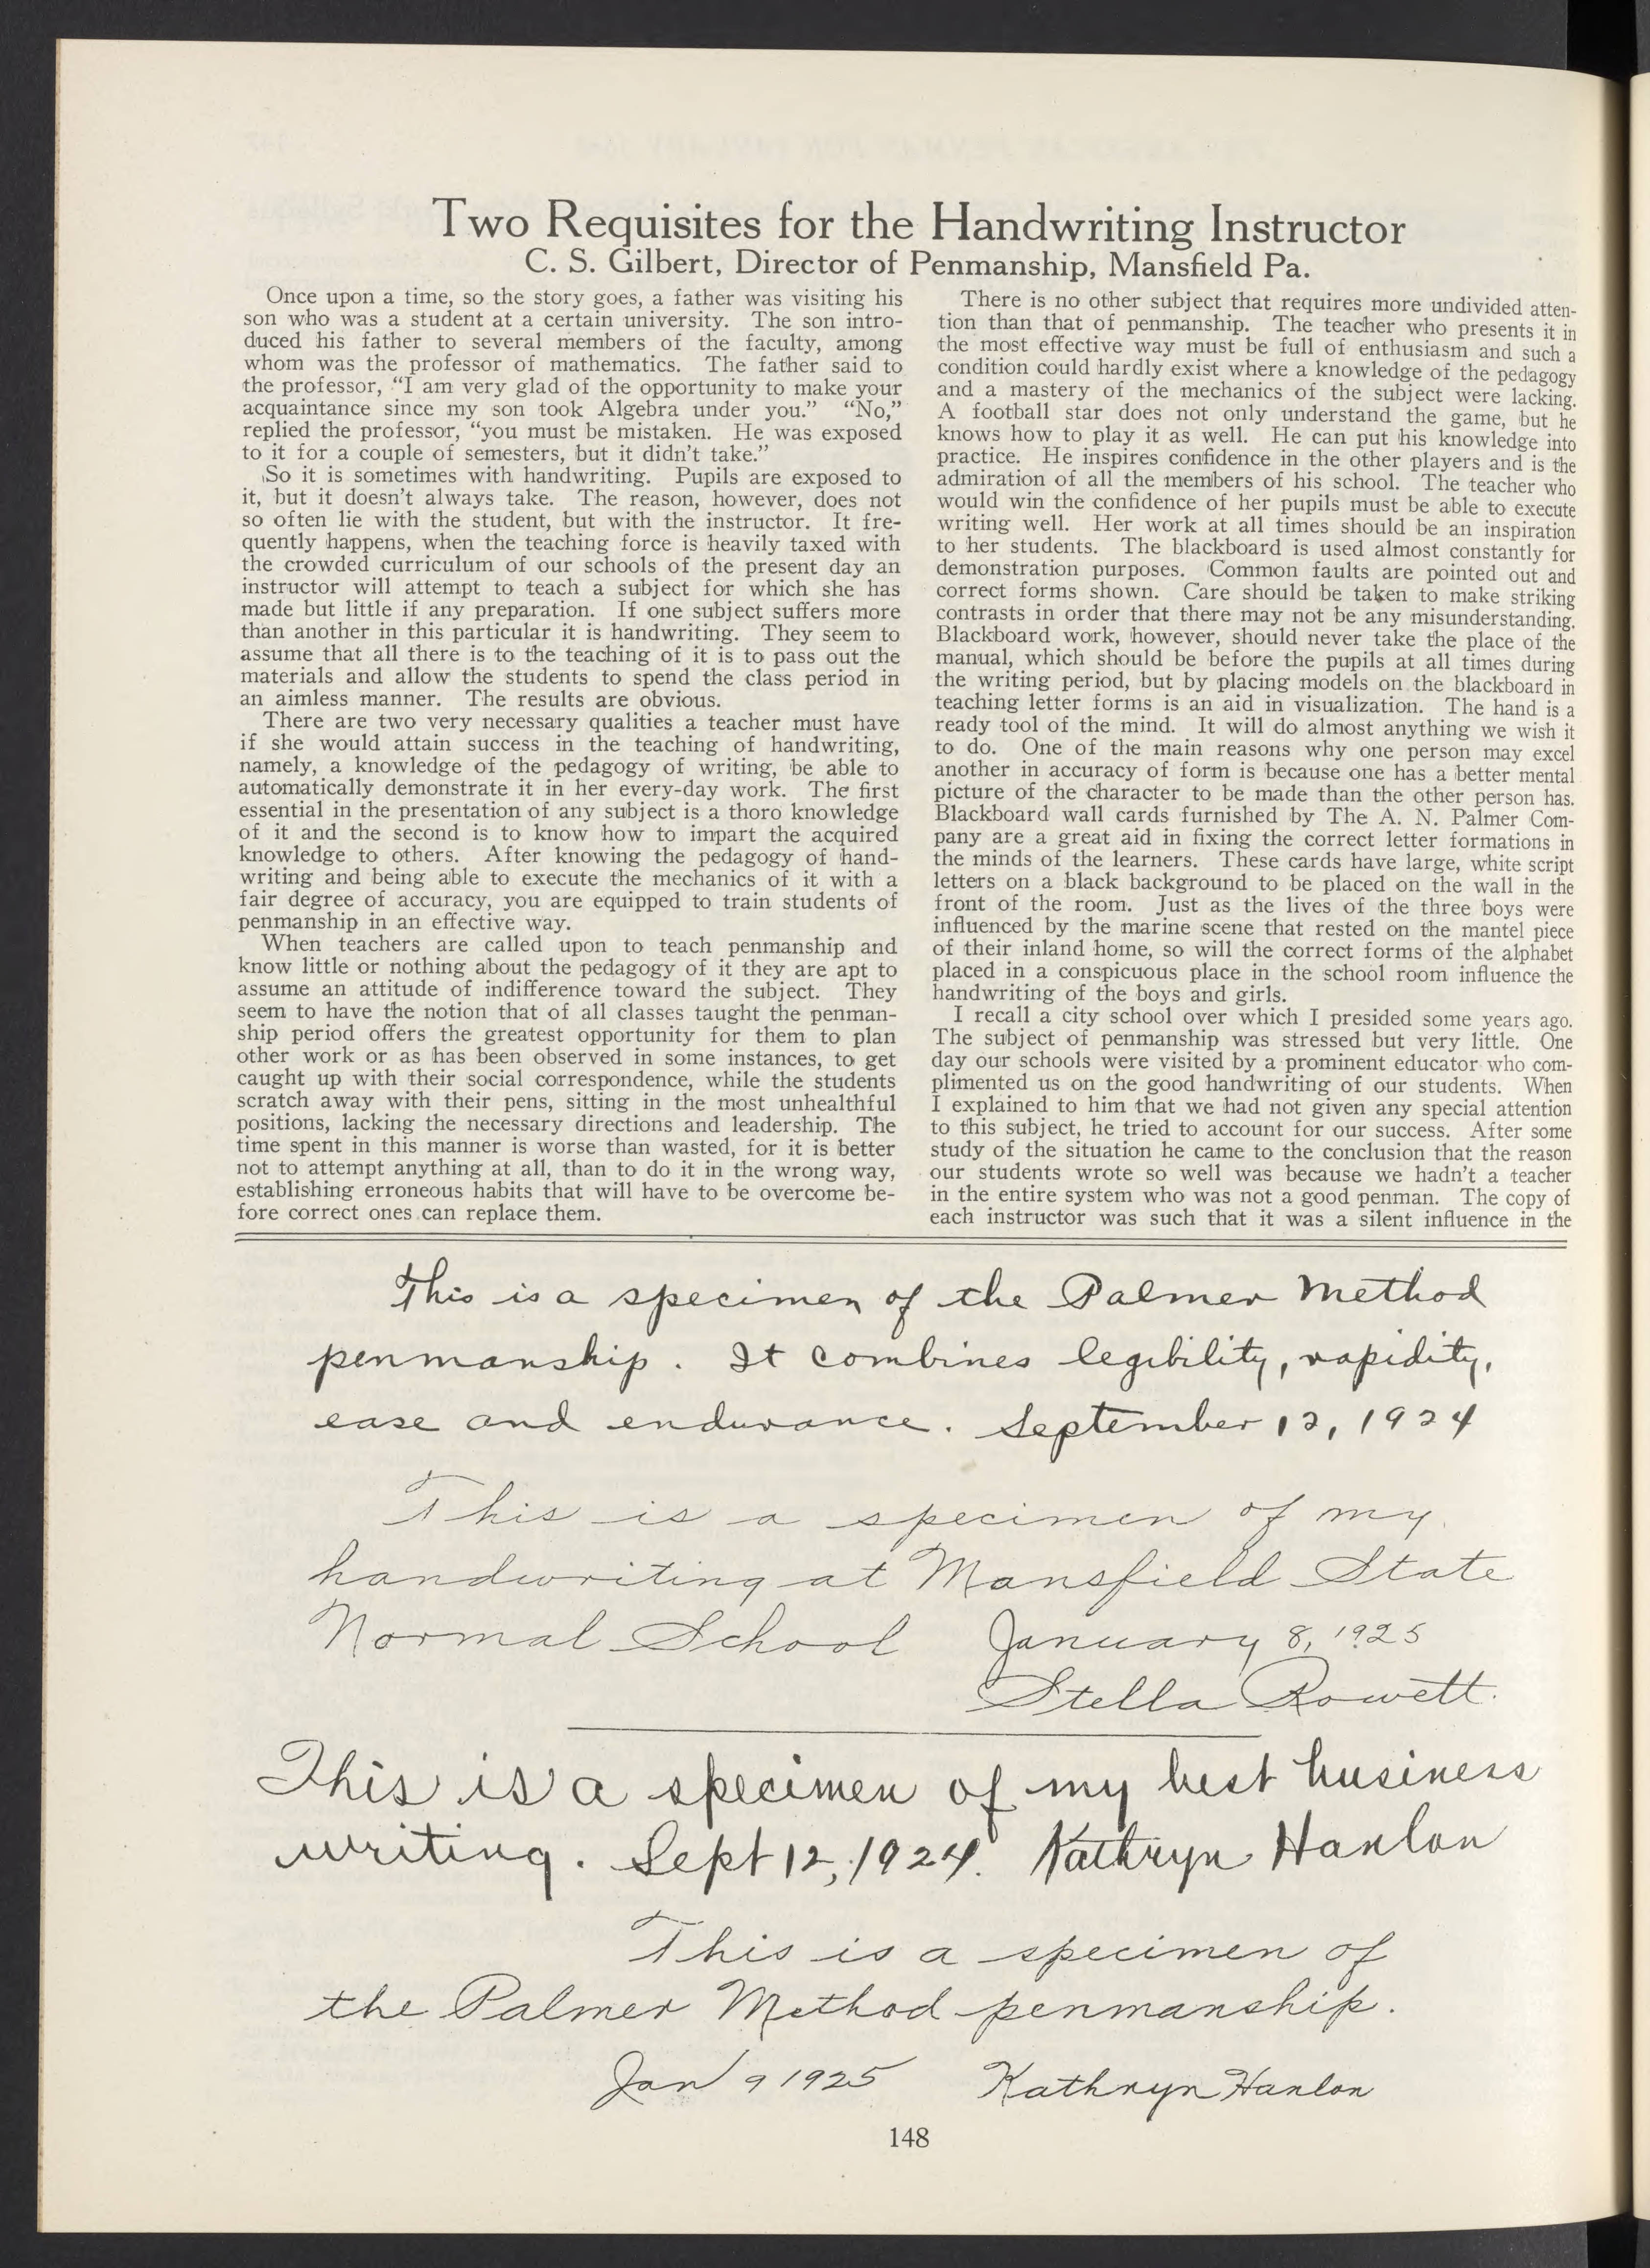 Two Requisites for the Handwriting Instructor
C. S. Gilbert, Director of Penmanship, Mansfield Pa.
Once upon a time, so the story goes, a father was visiting his
son who was a student at a certain university. The son intro-
duced his father to several members of the faculty, among
whom was the professor of mathematics. The father said to
the professor, “I am very glad of the opportunity to make your
acquaintance since my son took Algebra under you.” “No,”
replied the professor, “you must be mistaken. He was exposed
to it for a couple of semesters, but it didn’t take.”
So it is sometimes with handwriting. Pupils are exposed to
it, but it doesn’t always take. The reason, however, does not
so often lie with the student, but with the instructor. It fre-
quently happens, when the teaching force is heavily taxed with
the crowded curriculum of our schools of the present day an
instructor will attempt to teach a subject for which she has
made but little if any preparation. If one subject suffers more
than another in this particular it is handwriting. They seem to
assume that all there is to the teaching of it is to pass out the
materials and allow the students to spend the class period in
an aimless manner. The results are obvious.
There are two very necessary qualities a teacher must have
if she would attain success in the teaching of handwriting,
namely, a knowledge of the pedagogy of writing, be able to
automatically demonstrate it in her every-day work. The first
essential in the presentation of any subject is a thoro knowledge
of it and the second is to know how to impart the acquired
knowledge to others. After knowing the pedagogy of hand-
writing and being able to execute the mechanics of it with a
fair degree of accuracy, you are equipped to train students of
penmanship in an effective way.
When teachers are called upon to teach penmanship and
know little or nothing about the pedagogy of it they are apt to
assume an attitude of indifference toward the subject. They
seem to have the notion that of all classes taught the penman-
ship period offers the greatest opportunity for them to plan
other work or as has been observed in some instances, to get
caught up with their social correspondence, while the students
scratch away with their pens, sitting in the most unhealthful
positions, lacking the necessary directions and leadership. The
time spent in this manner is worse than wasted, for it is better
not to attempt anything at all, than to do it in the wrong way,
establishing erroneous habits that will have to be overcome be-
fore correct ones can replace them.
There is no other subject that requires more undivided atten-
tion than that of penmanship. The teacher who presents it in
the most effective way must be full of enthusiasm and such a
condition could hardly exist where a knowledge of the pedagogy
and a mastery of the mechanics of the subject were lacking.
A football star does not only understand the game, but he
knows how to play it as well. He can put his knowledge into
practice. He inspires confidence in the other players and is the
admiration of all the members of his school. The teacher who
would win the confidence of her pupils must be able to execute
writing well. Her work at all times should be an inspiration
to her students. The blackboard is used almost constantly for
demonstration purposes. Common faults are pointed out and
correct forms shown. Care should be taken to make striking
contrasts in order that there may not be any misunderstanding.
Blackboard work, however, should never take the place of the
manual, which should be before the pupils at all times during
the writing period, but by placing models on the blackboard in
teaching letter forms is an aid in visualization. The hand is a
ready tool of the mind. It will do almost anything we wish it
to do. One of the main reasons why one person may excel
another in accuracy of form is because one has a better mental
picture of the character to be made than the other person has.
Blackboard wall cards furnished by The A. N. Palmer Com-
pany are a great aid in fixing the correct letter formations in
the minds of the learners. These cards have large, white script
letters on a black background to be placed on the wall in the
front of the room. Just as the lives of the three boys were
influenced by the marine scene that rested on the mantel piece
of their inland home, so will the correct forms of the alphabet
placed in a conspicuous place in the school room influence the
handwriting of the boys and girls.
I recall a city school over which I presided some years ago.
The subject of penmanship was stressed but very little. One
day our schools were visited by a prominent educator who com-
plimented us on the good handwriting of our students. When
I explained to him that we had not given any special attention
to this subject, he tried to account for our success. After some
study of the situation he came to the conclusion that the reason
our students wrote so well was because we hadn’t a teacher
in the entire system who was not a good penman. The copy of
each instructor was such that it was a silent influence in the
This is a specimen of the Palmer Method
penmanship. It combines legibility, rapidity,
ease and endurance. September 12, 1924
This is a specimen of my
handwriting at Mansfield State
Normal School January 8, 1925
Stella Rowett.
This is a specimen of my best business
writing. Sept 12, 1924. Kathryn Hanlon
This is a specimen of
the Palmer Method penmanship.
Jan 9 1925 Kathryn Hanlon
148